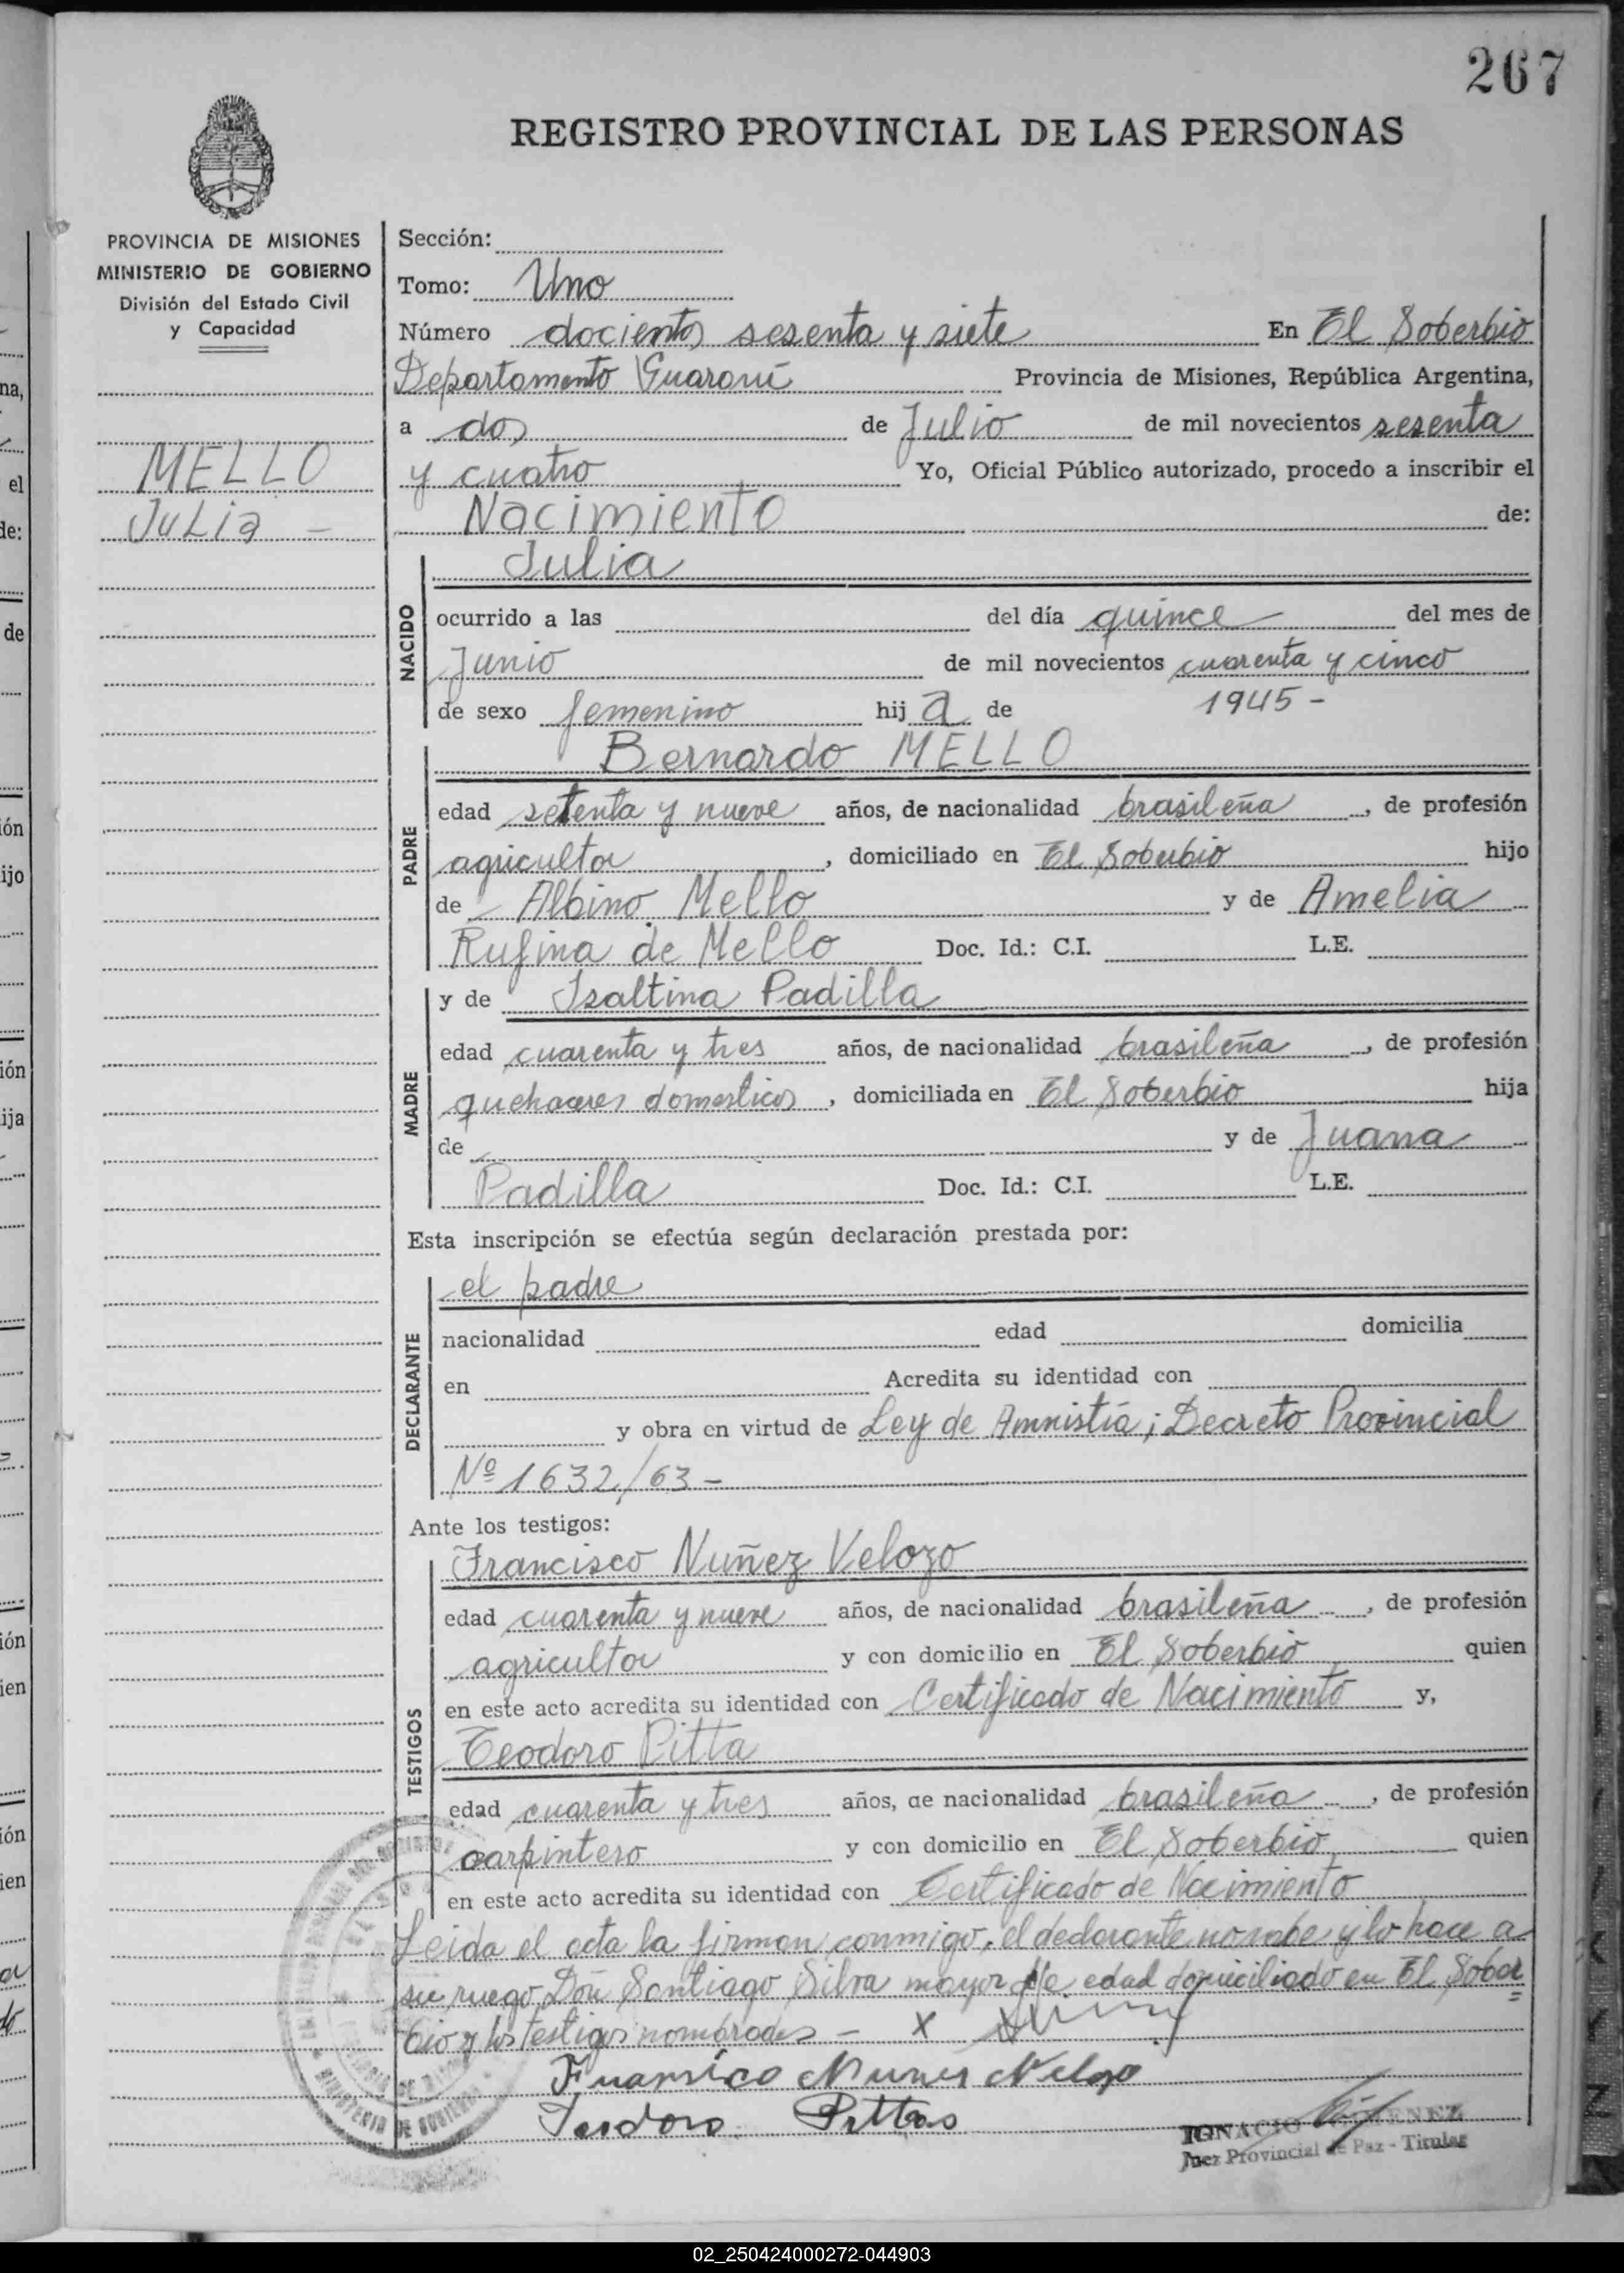 267
REGISTRO PROVINCIAL DE LAS PERSONAS
PROVINCIA DE MISIONES
MINISTERIO DE GOBIERNO
División del Estado Civil
y Capacidad
MELLO
JULIA -
Sección:
Tomo: Uno
Número docientos sesenta y siete En El Soberbio
Departamento Guaraní Provincia de Misiones, República Argentina,
a dos de Julio de mil novecientos sesenta
y cuatro Yo, Oficial Público autorizado, procedo a inscribir el
Nacimiento de:
NACIDO
Julia
ocurrido a las del día quince del mes de
Junio de mil novecientos cuarenta y cinco
de sexo femenino hij a de 1945 -
PADRE
Bernardo MELLO
edad setenta y nueve años, de nacionalidad brasileña, de profesión
agricultor, domiciliado en El Soberbio hijo
de Albino Mello y de Amelia
Rufina de Mello Doc. Id.: C.I. L.E.
MADRE
y de Isaltina Padilla
edad cuarenta y tres años, de nacionalidad brasileña, de profesión
quehaceres domesticos, domiciliada en El Soberbio hija
de y de Juana
Padilla Doc. Id.: C.I. L.E.
Esta inscripción se efectúa según declaración prestada por:
DECLARANTE
el padre
nacionalidad edad domicilia
en Acredita su identidad con
y obra en virtud de Ley de Amnistía; Decreto Provincial
Nº 1632/63 -
Ante los testigos:
TESTIGOS
Francisco Nuñez Velozo
edad cuarenta y nueve años, de nacionalidad brasileña, de profesión
agricultor y con domicilio en El Soberbio quien
en este acto acredita su identidad con Certificado de Nacimiento y,
Teodoro Pitta
edad cuarenta y tres años, de nacionalidad brasileña, de profesión
carpintero y con domicilio en El Soberbio, quien
en este acto acredita su identidad con Certificado de Nacimiento
Leida el acta la firman conmigo, el declarante no sabe y lo hace a
su ruego Don Santiago Silva mayor de edad domiciliado en El Sober
bio y los testigos nombrados - x
Teodoro Pittas
IGNACIO
Juez Provincial de Paz - Titular
MINISTERIO DE GOBIERNO
02_250424000272-044903